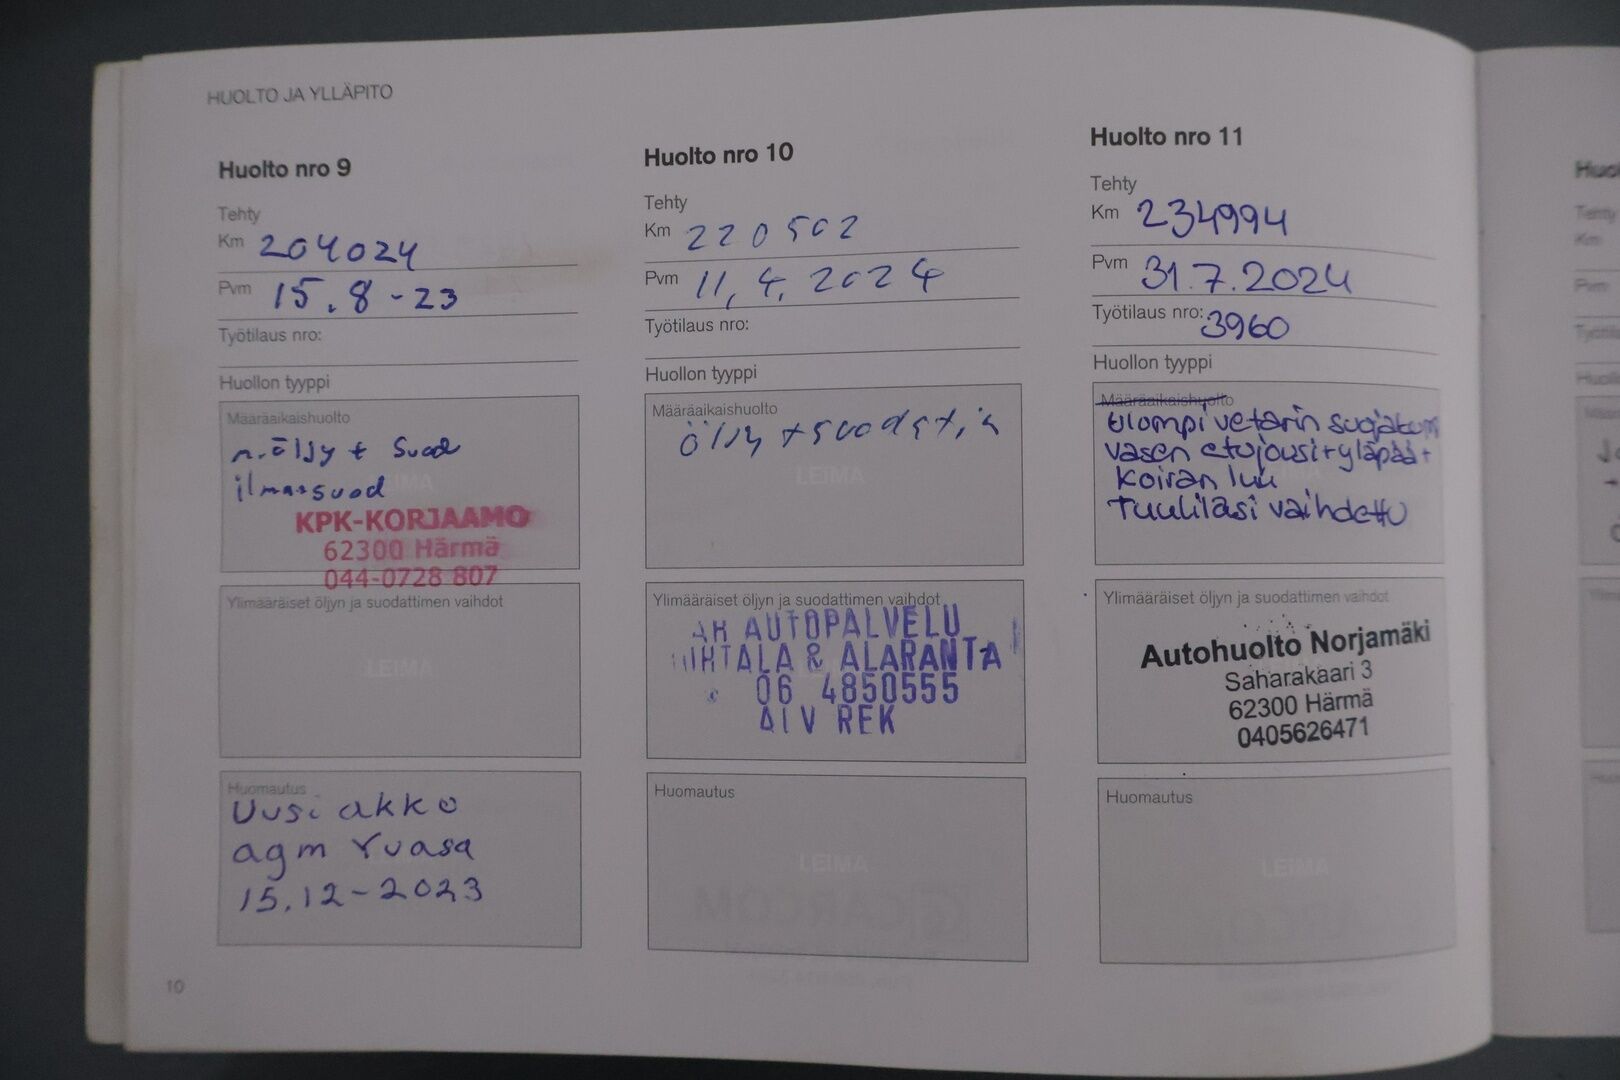 HUOLTO JA YLLÄPITO
Huolto nro 9
Tehty
Km 204024
Pvm 15.8-23
Työtilaus nro:
Huollon tyyppi
Määräaikaishuolto
m.öljy + suod
ilmassuod
LEIMA
KPK-KORJAAMO
62300 Härmä
044-0728 807
Ylimääräiset öljyn ja suodattimen vaihdot
LEIMA
Huomautus
Uusi akko
agm Yuasa
15.12-2023
10
Huolto nro 10
Tehty
Km 220502
Pvm 11,4.2024
Työtilaus nro:
Huollon tyyppi
Määräaikaishuolto
öljy + suodatin
LEIMA
Ylimääräiset öljyn ja suodattimen vaihdot
AUTOPALVELU
& ALARANTA
06 4850555
ALV REK
Huomautus
LEIMA
Huolto nro 11
Tehty
Km 234994
Pvm 31.7.2024
Työtilaus nro: 3960
Huollon tyyppi
Määräaikaishuolto
Ulompi vetarin suojakumi
vasen etujousi+yläpää+
Koiran luu
Tuulilasi vaihdettu
Ylimääräiset öljyn ja suodattimen vaihdot
Autohuolto Norjamäki
Saharakaari 3
62300 Härmä
0405626471
Huomautus
LEIMA